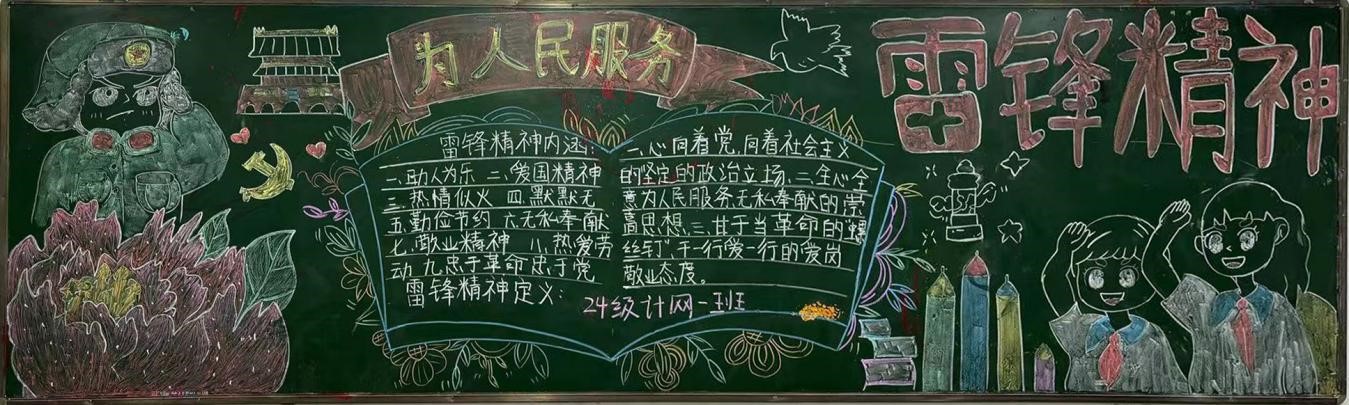 为人民服务
雷锋精神
雷锋精神内涵：
一、助人为乐 二、爱国精神
三、热情似火 四、默默无
五、勤俭节约 六、无私奉献
七、敬业精神 八、热爱劳
动 九、忠于革命忠于党
雷锋精神定义：
一、心向着党、向着社会主义
的坚定的政治立场、二、全心全
意为人民服务无私奉献的崇
高思想、三、甘于当革命的螺
丝钉、干一行爱一行的爱岗
敬业态度。
24级计网一班